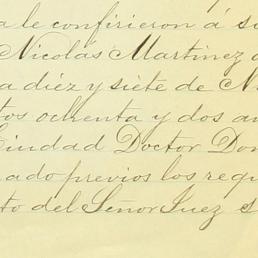 a le confirieron á su
Nicolás Martinez
a diéz y siete de N
tos ochenta y dos an
Ciudad Doctor Don
ado previos los requ
to del Señor Juez s